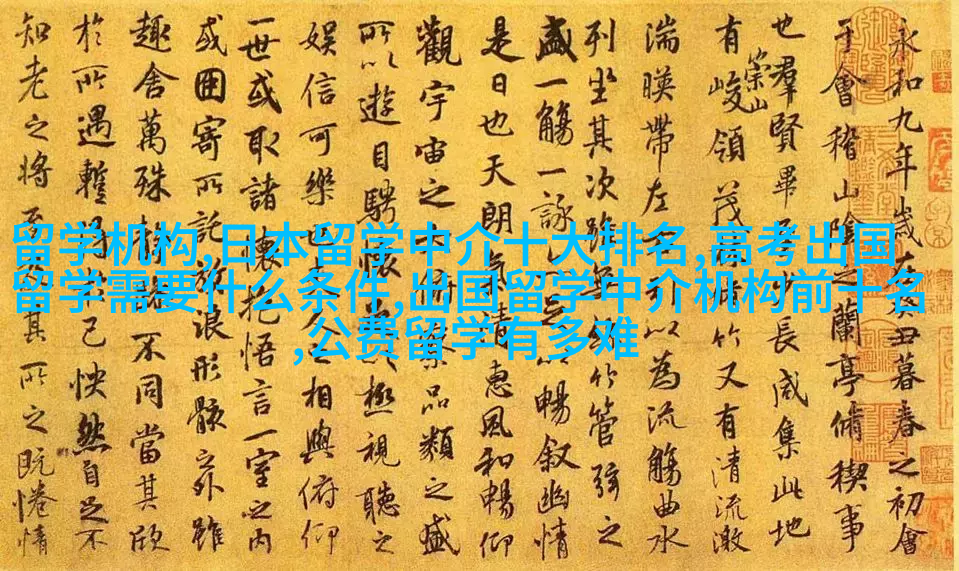 留学机构,日本留学中介十大排名,高考出国
留学需要什么条件,出国留学中介机构前十名
,公费留学有多难
永和九年歲在癸丑暮春之初會
于會稽山陰之蘭亭脩稧事
也羣賢畢至少長咸集此地
有崇山峻領茂林脩竹又有清流激
湍暎帶左右引以為流觴曲水
列坐其次雖無絲竹管弦之
盛一觴一詠足以暢敘幽情
是日也天朗氣清惠風和暢仰
觀宇宙之大俯察品類之盛
所以遊目騁懷足以極視聽之
娛信可樂也夫人之相與俯仰
一世或取諸懷抱悟言一室之内
或因寄所託放浪形骸之外雖
趣舍萬殊靜躁不同當其欣
於所遇蹔得於己怏然自足不
知老之將至及其所之既惓情